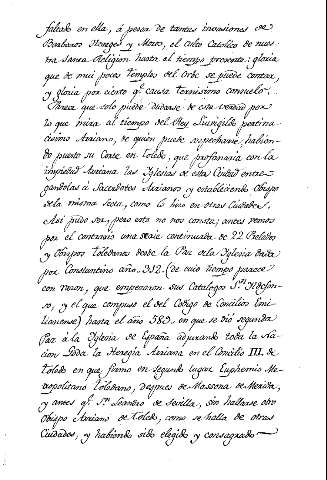 faltado en ella, á pesar de tantas invasiones de
Barbaros Hereges y Moros, el culto Catolico de nues-
tra santa Religion hasta el tiempo presente: gloria
que de mui pocos templos del Orbe se puede contar,
y gloria por cierto qᵉ. causa ternisimo consuelo.
Parece que solo puede dudarse de esta verdad por
lo que mira al tiempo del Rey Liuvigildo pertina-
cisimo Arriano, de quien puede sospecharse, habien-
do puesto su Corte en Toledo, que profanaria con la
impiedad Arriana las Iglesias de esta Ciudad entre-
gandolas á Sacerdotes Arrianos y estableciendo Obispo
de la misma Secta, como lo hizo en otras Ciudades.
Asi pudo ser, pero esto no nos consta; antes vemos
por el contrario una serie continuada de 22 Prelados
y Obispos Toledanos desde la Paz de la Iglesia dada
por Constantino año. 312. (de cuio tiempo parece
con razon, que empezaron sus Catalogos Sⁿ. Ildefon-
so, y el que compuso el del Codigo de Concilios Emi-
lianense) hasta el año 589. en que se dió segunda
Paz á la Iglesia de España abjurando toda la Na-
cion Goda la Heregia Arriana en el Concilio III. de
Toledo en que firmó en segundo lugar Euphemio Me-
tropolitano Toledano, despues de Massona de Merida,
y antes qᵉ. Sⁿ. Leandro de Sevilla, sin hallarse otro
Obispo Arriano de Toledo, como se halla de otras
Ciudades, y habiendo sido elegido y consagrado